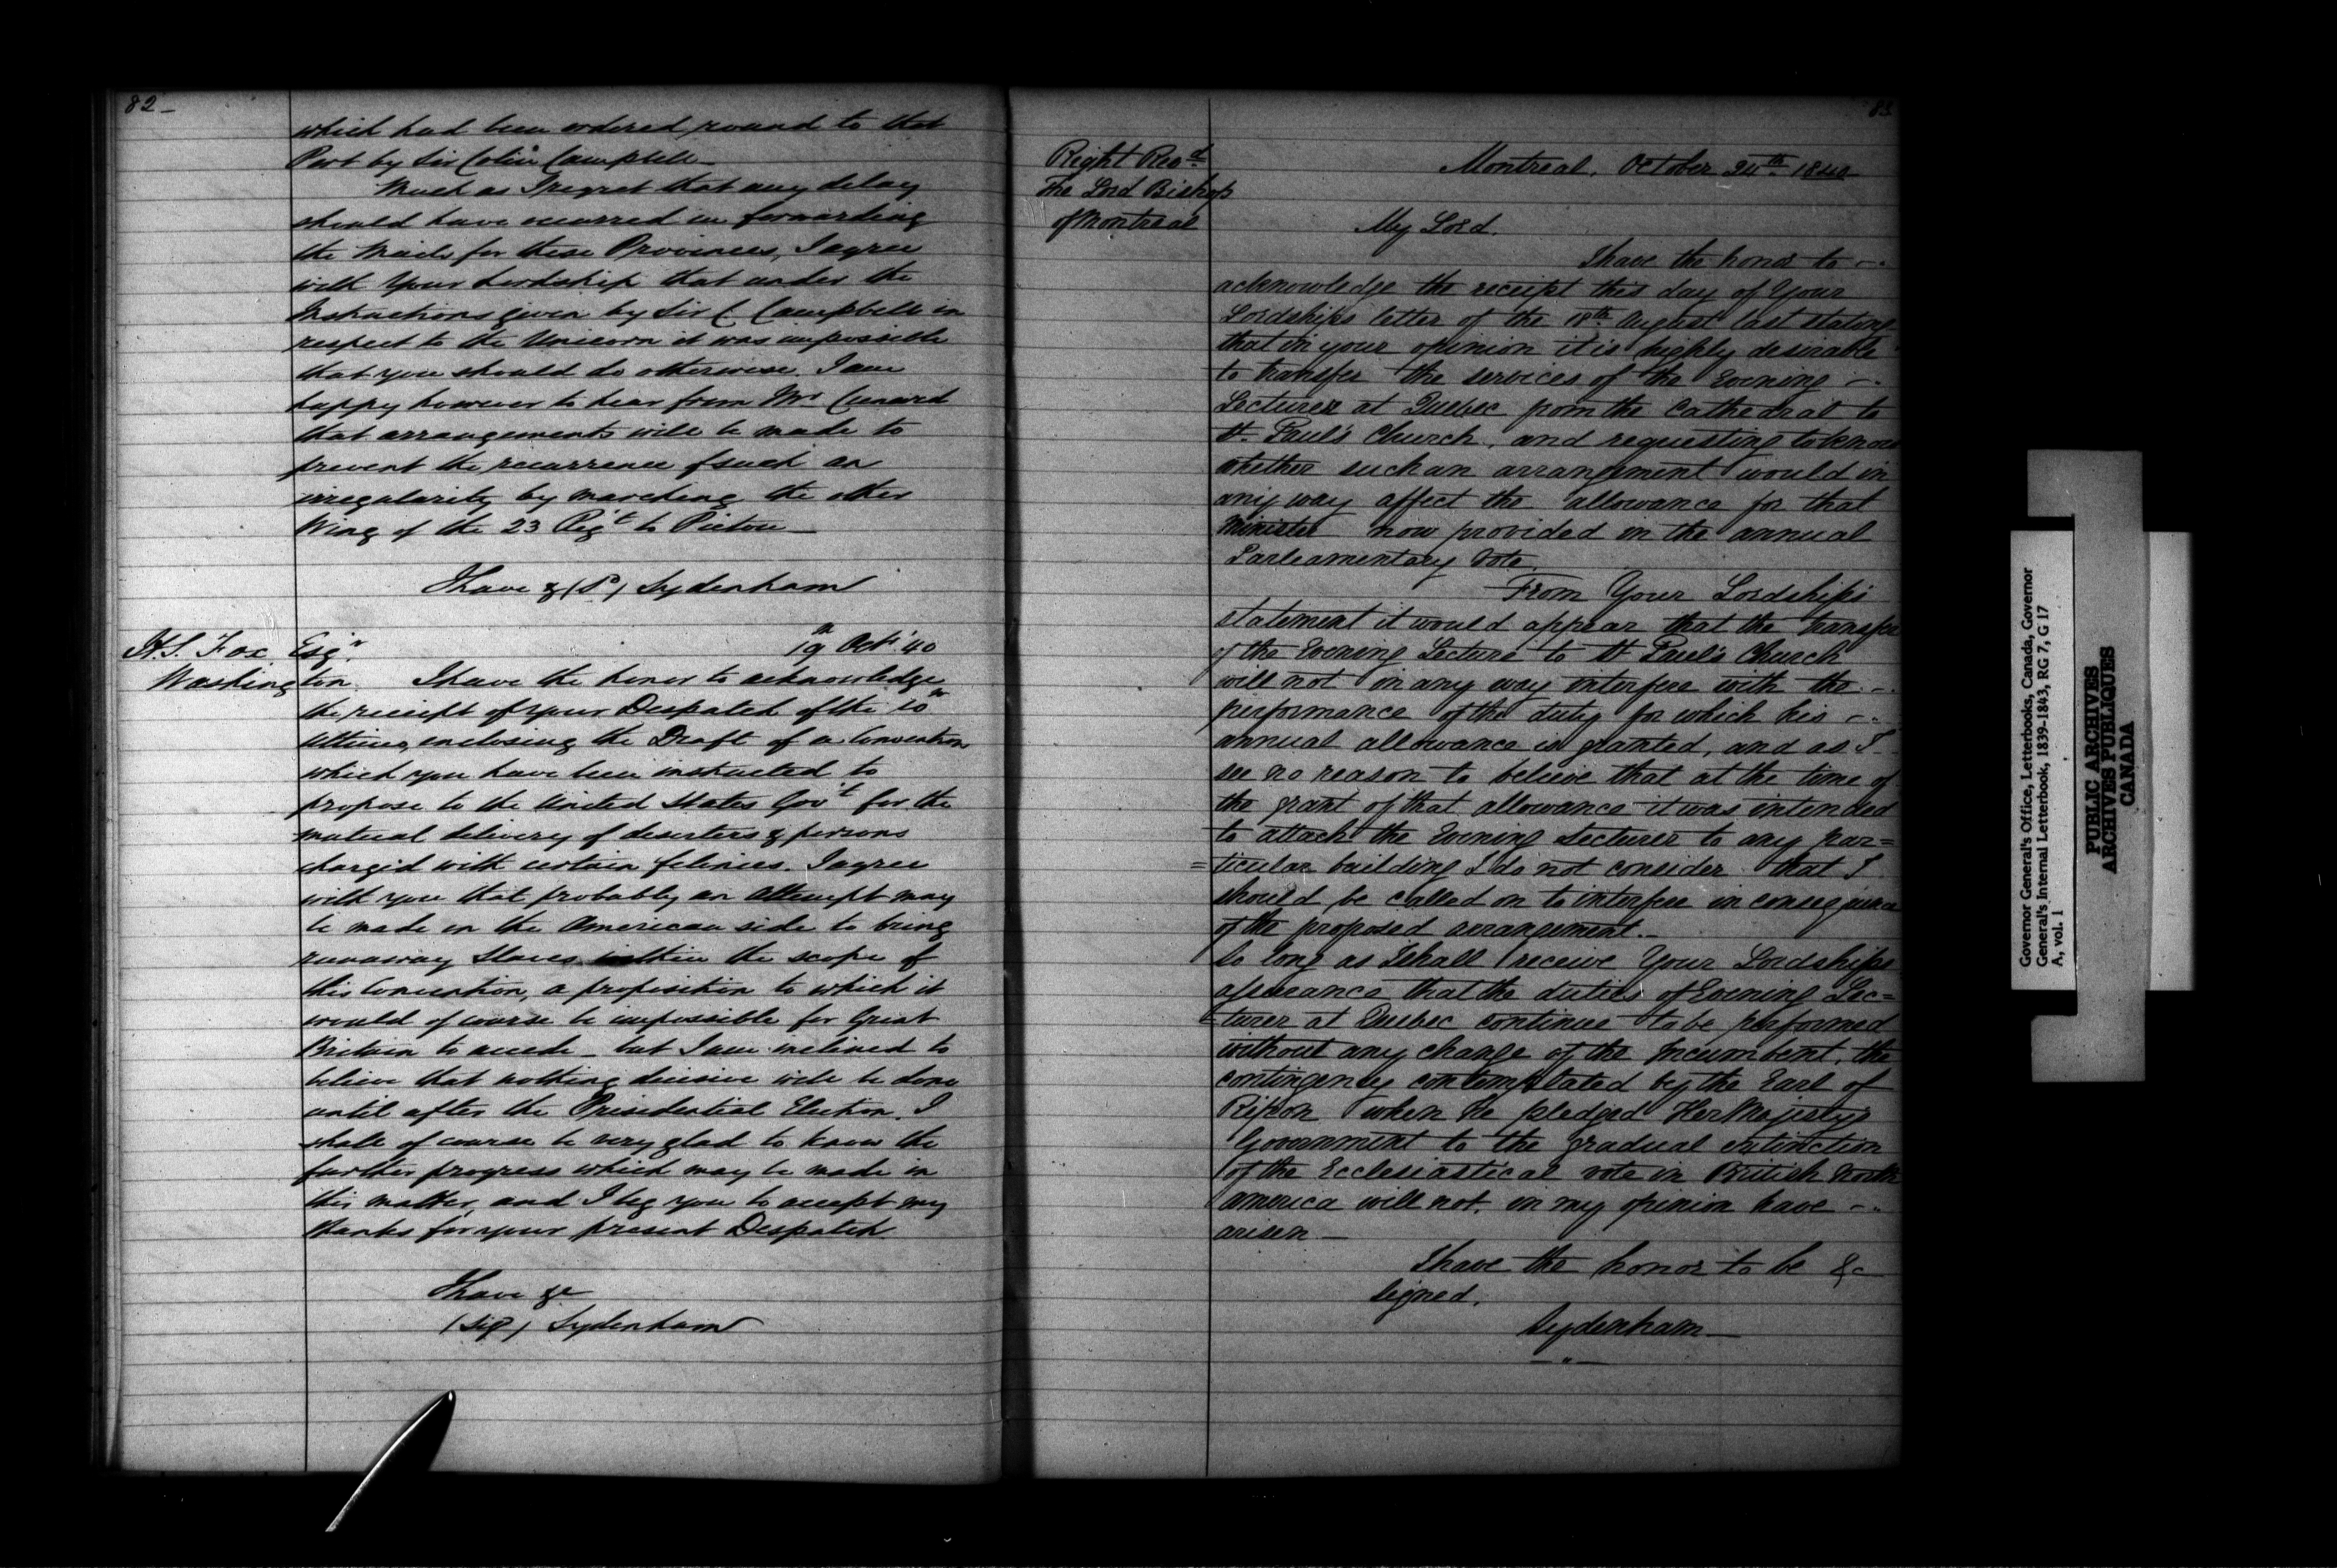 82_
which had been ordered round to that
Port by Sir Colin Campbell_
Much as I regret that any delay
should have occurred in forwarding
the Mails for these Provinces, I agree
with Your Lordship that under the
Instructions given by Sir C Campbell in
respect to the Unicorn it was impossible
that you should do otherwise. I am
happy however to hear from Mr Cunard
that arrangements will be made to
prevent the recurrence of such an
irregularity by marching the other
Wing of the 23 Regt to Pictou_
I have & (S) Sydenham
H.S. Fox Esqr. 19th Oct '40
Washington. I have the honor to acknowledge
the receipt of your Despatch of the 10th
Ultimo, enclosing the Draft of a Convention
which you have been instructed to
propose to the United States Govt for the
mutual delivery of deserters & persons
charged with certain felonies. I agree
with you that probably an attempt may
be made on the American side to bring
runaway Slaves within the scope of
this Convention, a proposition to which it
would of course be impossible for Great
Britain to accede_ but I am inclined to
believe that nothing decisive will be done
until after the Presidential Election. I
shall of course be very glad to know the
further progress which may be made in
this matter, and I beg you to accept my
thanks for your present Despatch
I have &c
(Sig) Sydenham
83
Right Revd.
The Lord Bishop
of Montreal
Montreal. October 24th. 1840
My Lord.
I have the honor to
acknowledge the receipt this day of Your
Lordships letter of the 18th. August last stating
that in your opinion it is highly desirable
to transfer the services of the Evening
Lecturer at Quebec from the Cathedral to
St. Paul's Church, and requesting to know
whether such an arrangement would in
any way affect the allowance for that
Minister now provided in the annual
Parliamentary Vote.
From Your Lordship's
statement it would appear that the transfer
of the Evening Lecture to St Paul's Church
will not in any way interfere with the
performance of the duty for which his
annual allowance is granted, and as I
see no reason to believe that at the time of
the grant of that allowance it was intended
to attach the Evening Lecturer to any par=
=ticular building I do not consider that I
should be called on to interfere in consequence
of the proposed arrangement._
So long as I shall receive Your Lordships
assurance that the duties of Evening Lec=
=turer at Quebec continue to be performed
without any change of the Incumbent, the
contingency contemplated by the Earl of
Ripon when he pledged Her Majesty's
Government to the gradual extinction
of the Ecclesiastical vote in British North
America will not, in my opinion have
arisen_
I have the honor to be &c
Signed.
Sydenham_
Governor General's Office, Letterbooks, Canada, Governor
General's Internal Letterbook, 1839-1843, RG 7, G 17
A, vol. 1
PUBLIC ARCHIVES
ARCHIVES PUBLIQUES
CANADA